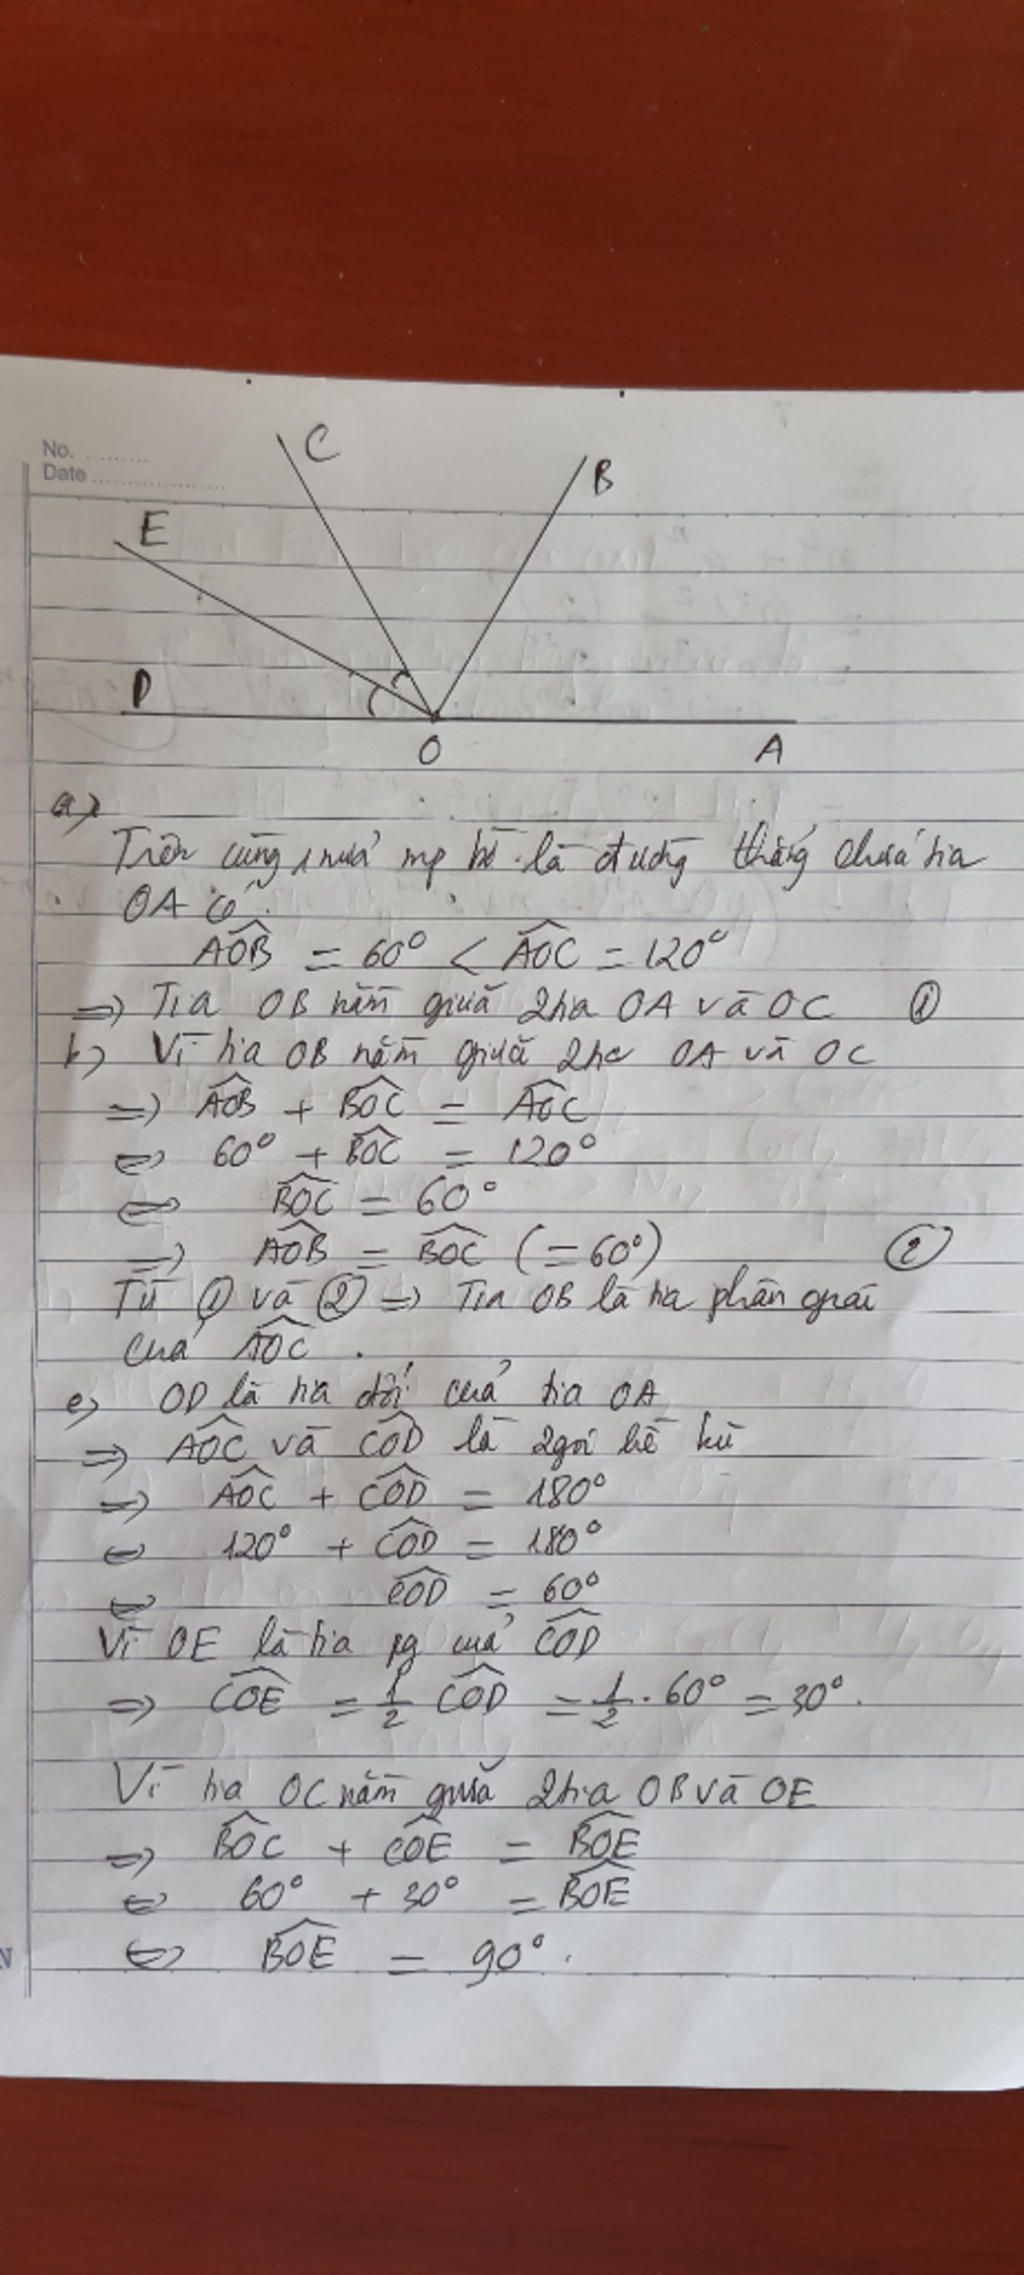 No. ..........
Date ....................
C
B
E
D
O
A
a)
Trên cùng 1 nửa mp bờ là đường thẳng chứa tia
OA có:
AOB = 60° < AOC = 120°
=> Tia OB nằm giữa 2 tia OA và OC ①
b) Vì tia OB nằm giữa 2 tia OA và OC
=> AOB + BOC = AOC
<=> 60° + BOC = 120°
<=> BOC = 60°
=> AOB = BOC (= 60°) ②
Từ ① và ② => Tia OB là tia phân giác
của AOC.
c) OD là tia đối của tia OA
=> AOC và COD là 2 góc kề bù
=> AOC + COD = 180°
<=> 120° + COD = 180°
<=> COD = 60°
Vì OE là tia pg của COD
=> COE = 1/2 COD = 1/2 . 60° = 30°.
Vì tia OC nằm giữa 2 tia OB và OE
=> BOC + COE = BOE
<=> 60° + 30° = BOE
<=> BOE = 90°.